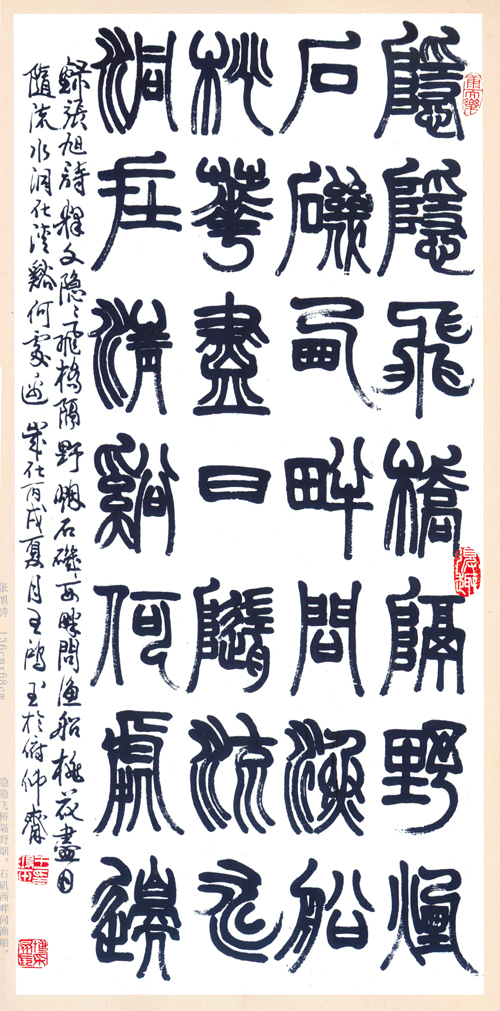 隱隱飛橋隔野煙
石磯西畔問漁船
桃華盡日隨流水
洞在清谿何處邊
錄張旭詩釋文隐〻飛橋隔野煙石磯西畔問漁船桃花盡日
隨流水洞在清谿何處邊 歲在丙戌夏月王鴻玉於俯仰齋
张旭诗 136cm×68cm
隐隐飞桥隔野烟。石矶西畔问渔船。